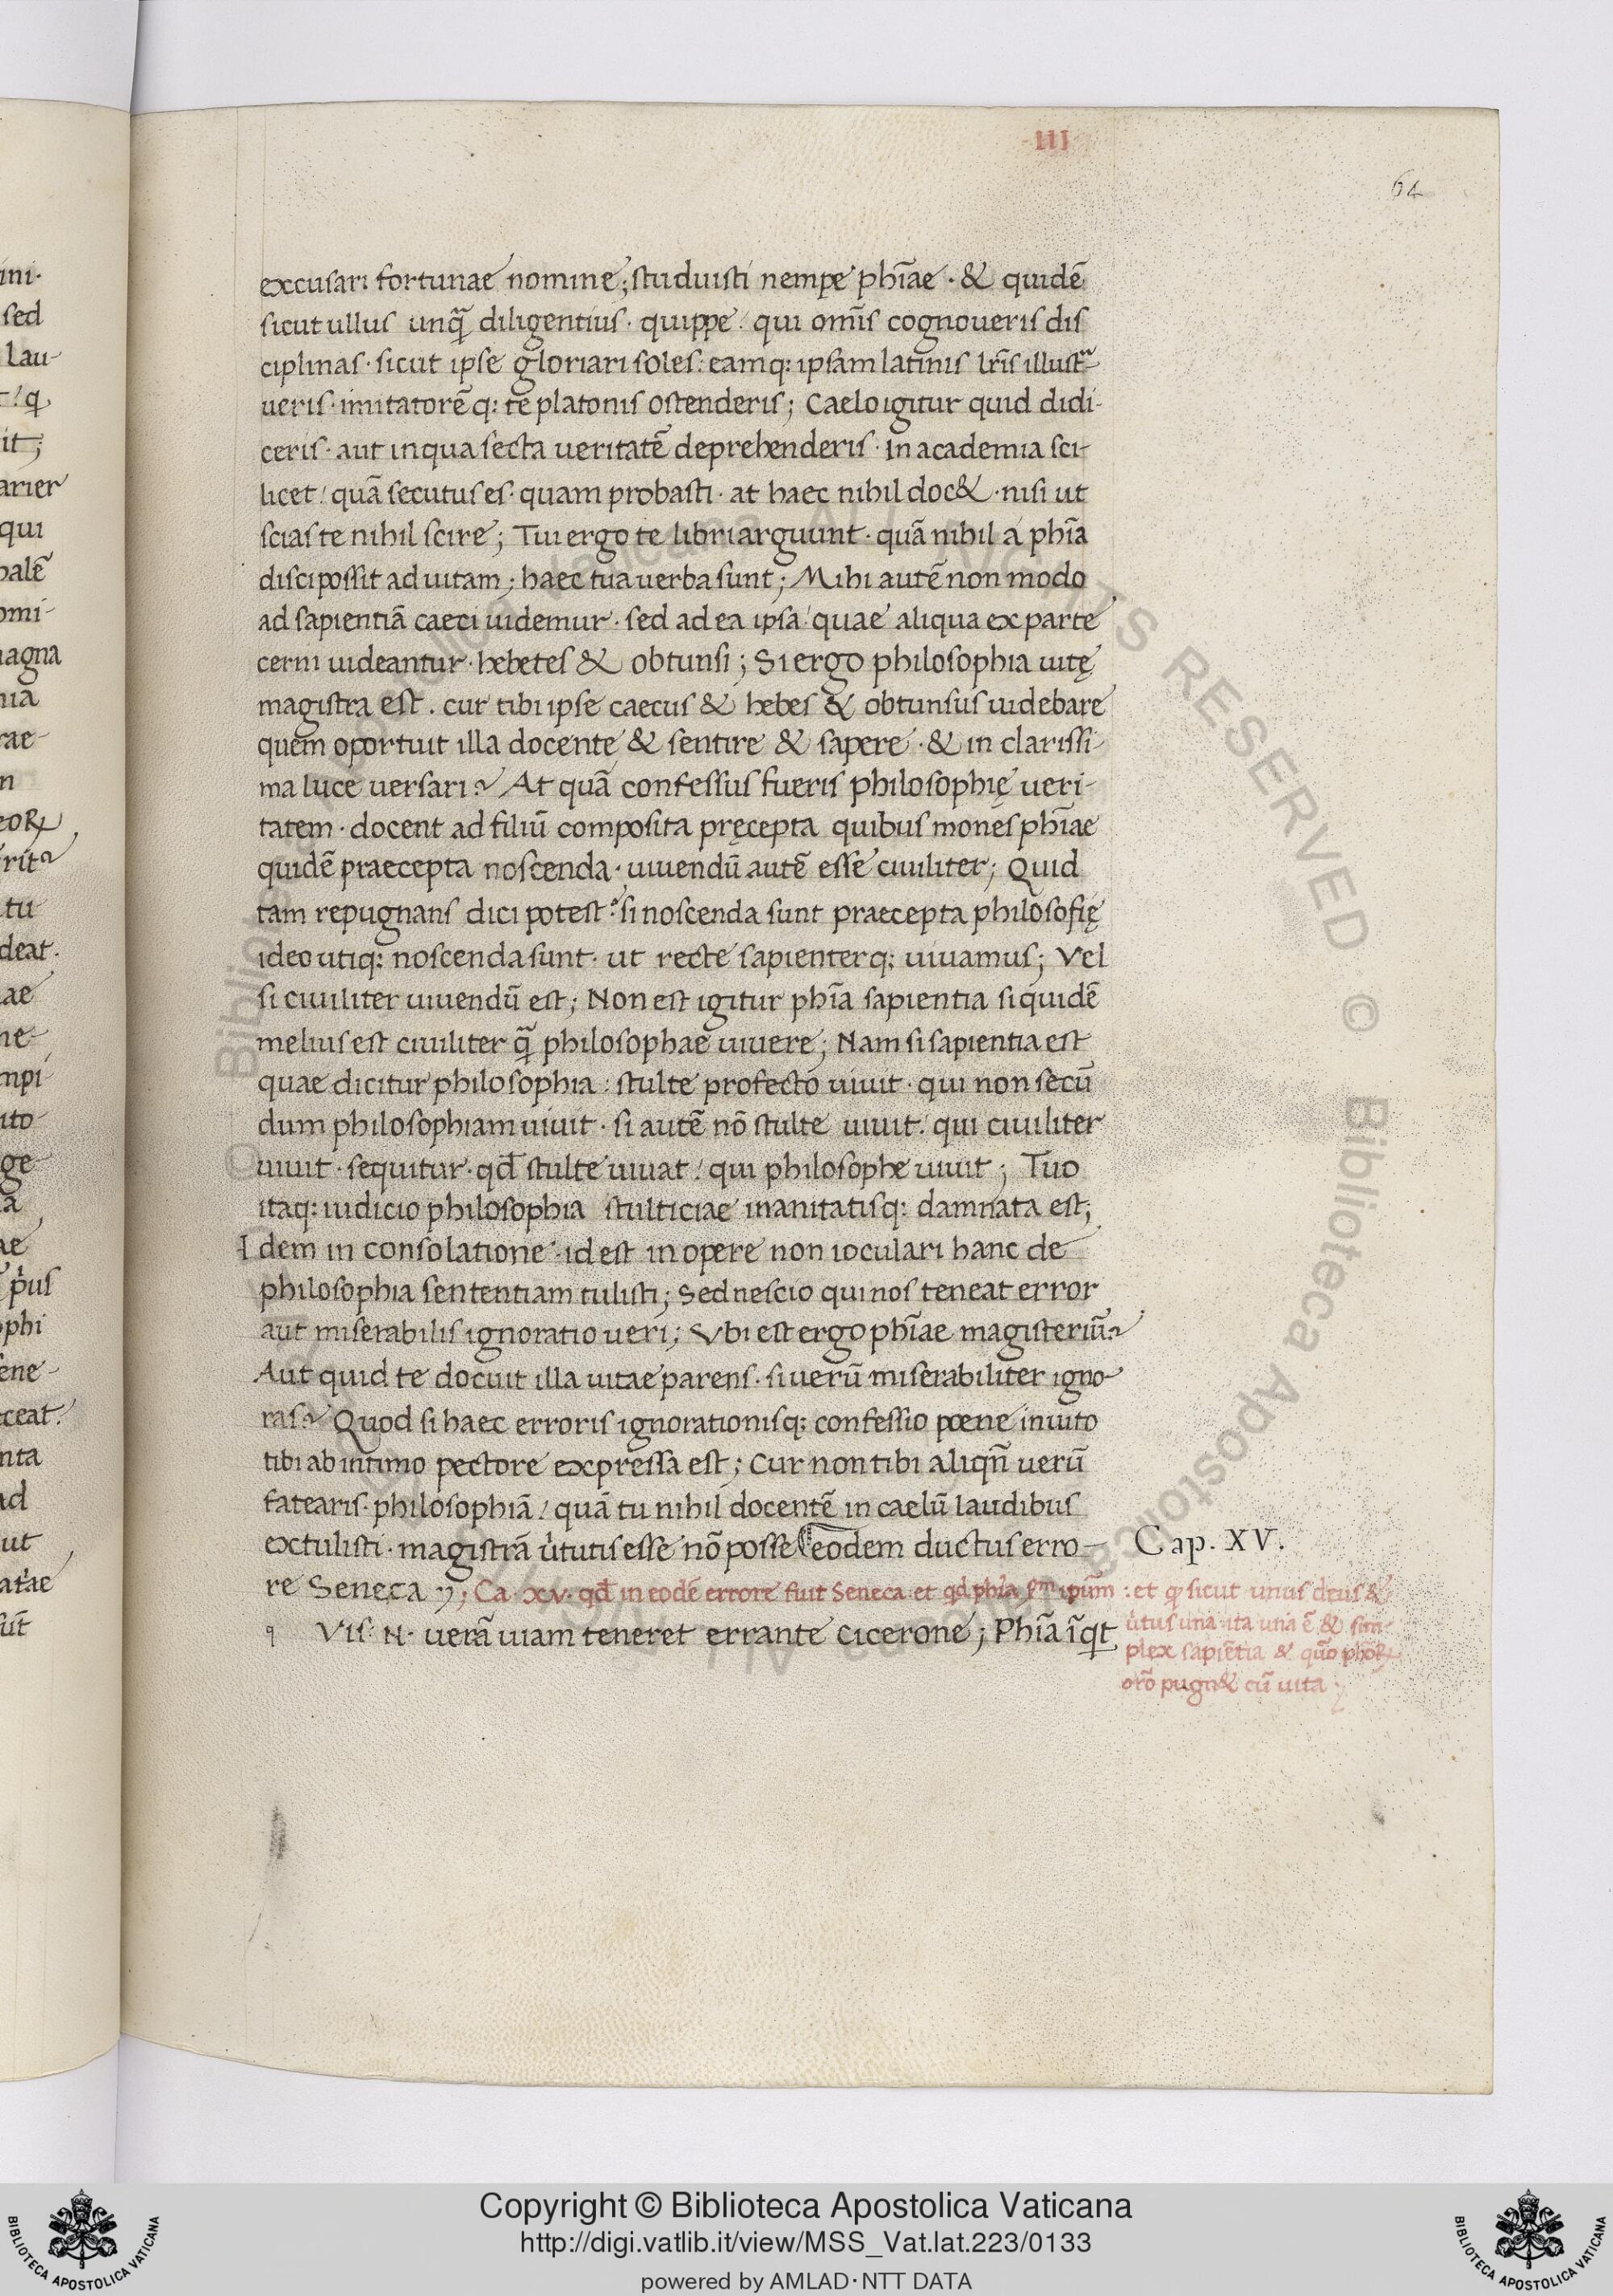 ·III·
64
ini·
sed
Lau-
it;
arier
qui
palē
omi-
magna
nia
rae-
n
tu
deat·
ae
ne-
mpi-
ito-
ge-
a
ae
p̍us
ophi
ene-
ceat·
nta
ad
ut
sūt
excusari fortunae nomine; studuisti nempe phīae · & quidē
sicut ullus unq̄ diligentius · quippe / qui om̄s cognoueris dis
ciplinas · sicut ipse gloriari soles: eamq: ipsam latinis lr̄is illustr̄-
ueris · imitatorē q: te platonis ostenderis; Caelo igitur quid didi-
ceris · aut in qua secta ueritatē deprehenderis · In academia sci-
licet / quā secutus es · quam probasti · at haec nihil doc& · nisi ut
scias te nihil scire; Tui ergo te libri arguunt · quā nihil a phīa
disci possit ad uitam; haec tua uerba sunt; Mihi autē non modo
ad sapientiā caeci uidemur · sed ad ea ipsa / quae aliqua ex parte
cerni uideantur · hebetes & obtunsi; Si ergo philosophia uitę
magistra est · cur tibi ipse caecus & hebes & obtunsus uidebare
quem oportuit illa docente & sentire & sapere · & in clarissi-
ma luce uersari? At quā confessus fueris philosophię ueri-
tatem · docent ad filiū composita pręcepta quibus mones phīae
quidē praecepta noscenda · uiuendū autē esse ciuiliter; Quid
tam repugnans dici potest? si noscenda sunt praecepta philosofię
ideo utiq: noscenda sunt · ut recte sapienterq: uiuamus; Vel
si ciuiliter uiuendū est; Non est igitur phīa sapientia siquidē
melius est ciuiliter q̄ philosophae uiuere; Nam si sapientia est
quae dicitur philosophia: stulte profecto uiuit · qui non secū
dum philosophiam uiuit · si autē nō stulte uiuit / qui ciuiliter
uiuit · sequitur · qd̄ stulte uiuat / qui philosophe uiuit; Tuo
itaq: iudicio philosophia stulticiae inanitatisq: damnata est;
Idem in consolatione · id est in opere non ioculari hanc de
philosophia sententiam tulisti; Sed nescio qui nos teneat error
aut miserabilis ignoratio ueri; Vbi est ergo phīae magisteriū?
Aut quid te docuit illa uitae parens · si uerū miserabiliter igno-
ras? Quod si haec erroris ignorationisq: confessio poene inuito
tibi ab intimo pectore expressa est; Cur non tibi aliqn̄ uerū
fatearis · philosophiā / quā tu nihil docentē in caelū laudibus
extulisti · magistrā u̍tutis esse nō posse eodem ductus erro-
Cap. XV.
re Seneca ; Ca · xv · qd̄ in eodē errore fuit Seneca · et qd phīa sm̄ ipūm : et q sicut unus deus &
u̍tus una · ita una ē & sim-
plex sapiētia & quō phoꝝ
orō pugn& cū uita
q Vis · N · uerā uiam teneret errante cicerone; Phīa īqt
© Biblioteca Apostolica Vaticana ALL RIGHTS RESERVED © Biblioteca Apostolica Vaticana ALL RIGHTS RESERVED
Copyright © Biblioteca Apostolica Vaticana
http://digi.vatlib.it/view/MSS_Vat.lat.223/0133
powered by AMLAD·NTT DATA
BIBLIOTECA APOSTOLICA VATICANA
BIBLIOTECA APOSTOLICA VATICANA